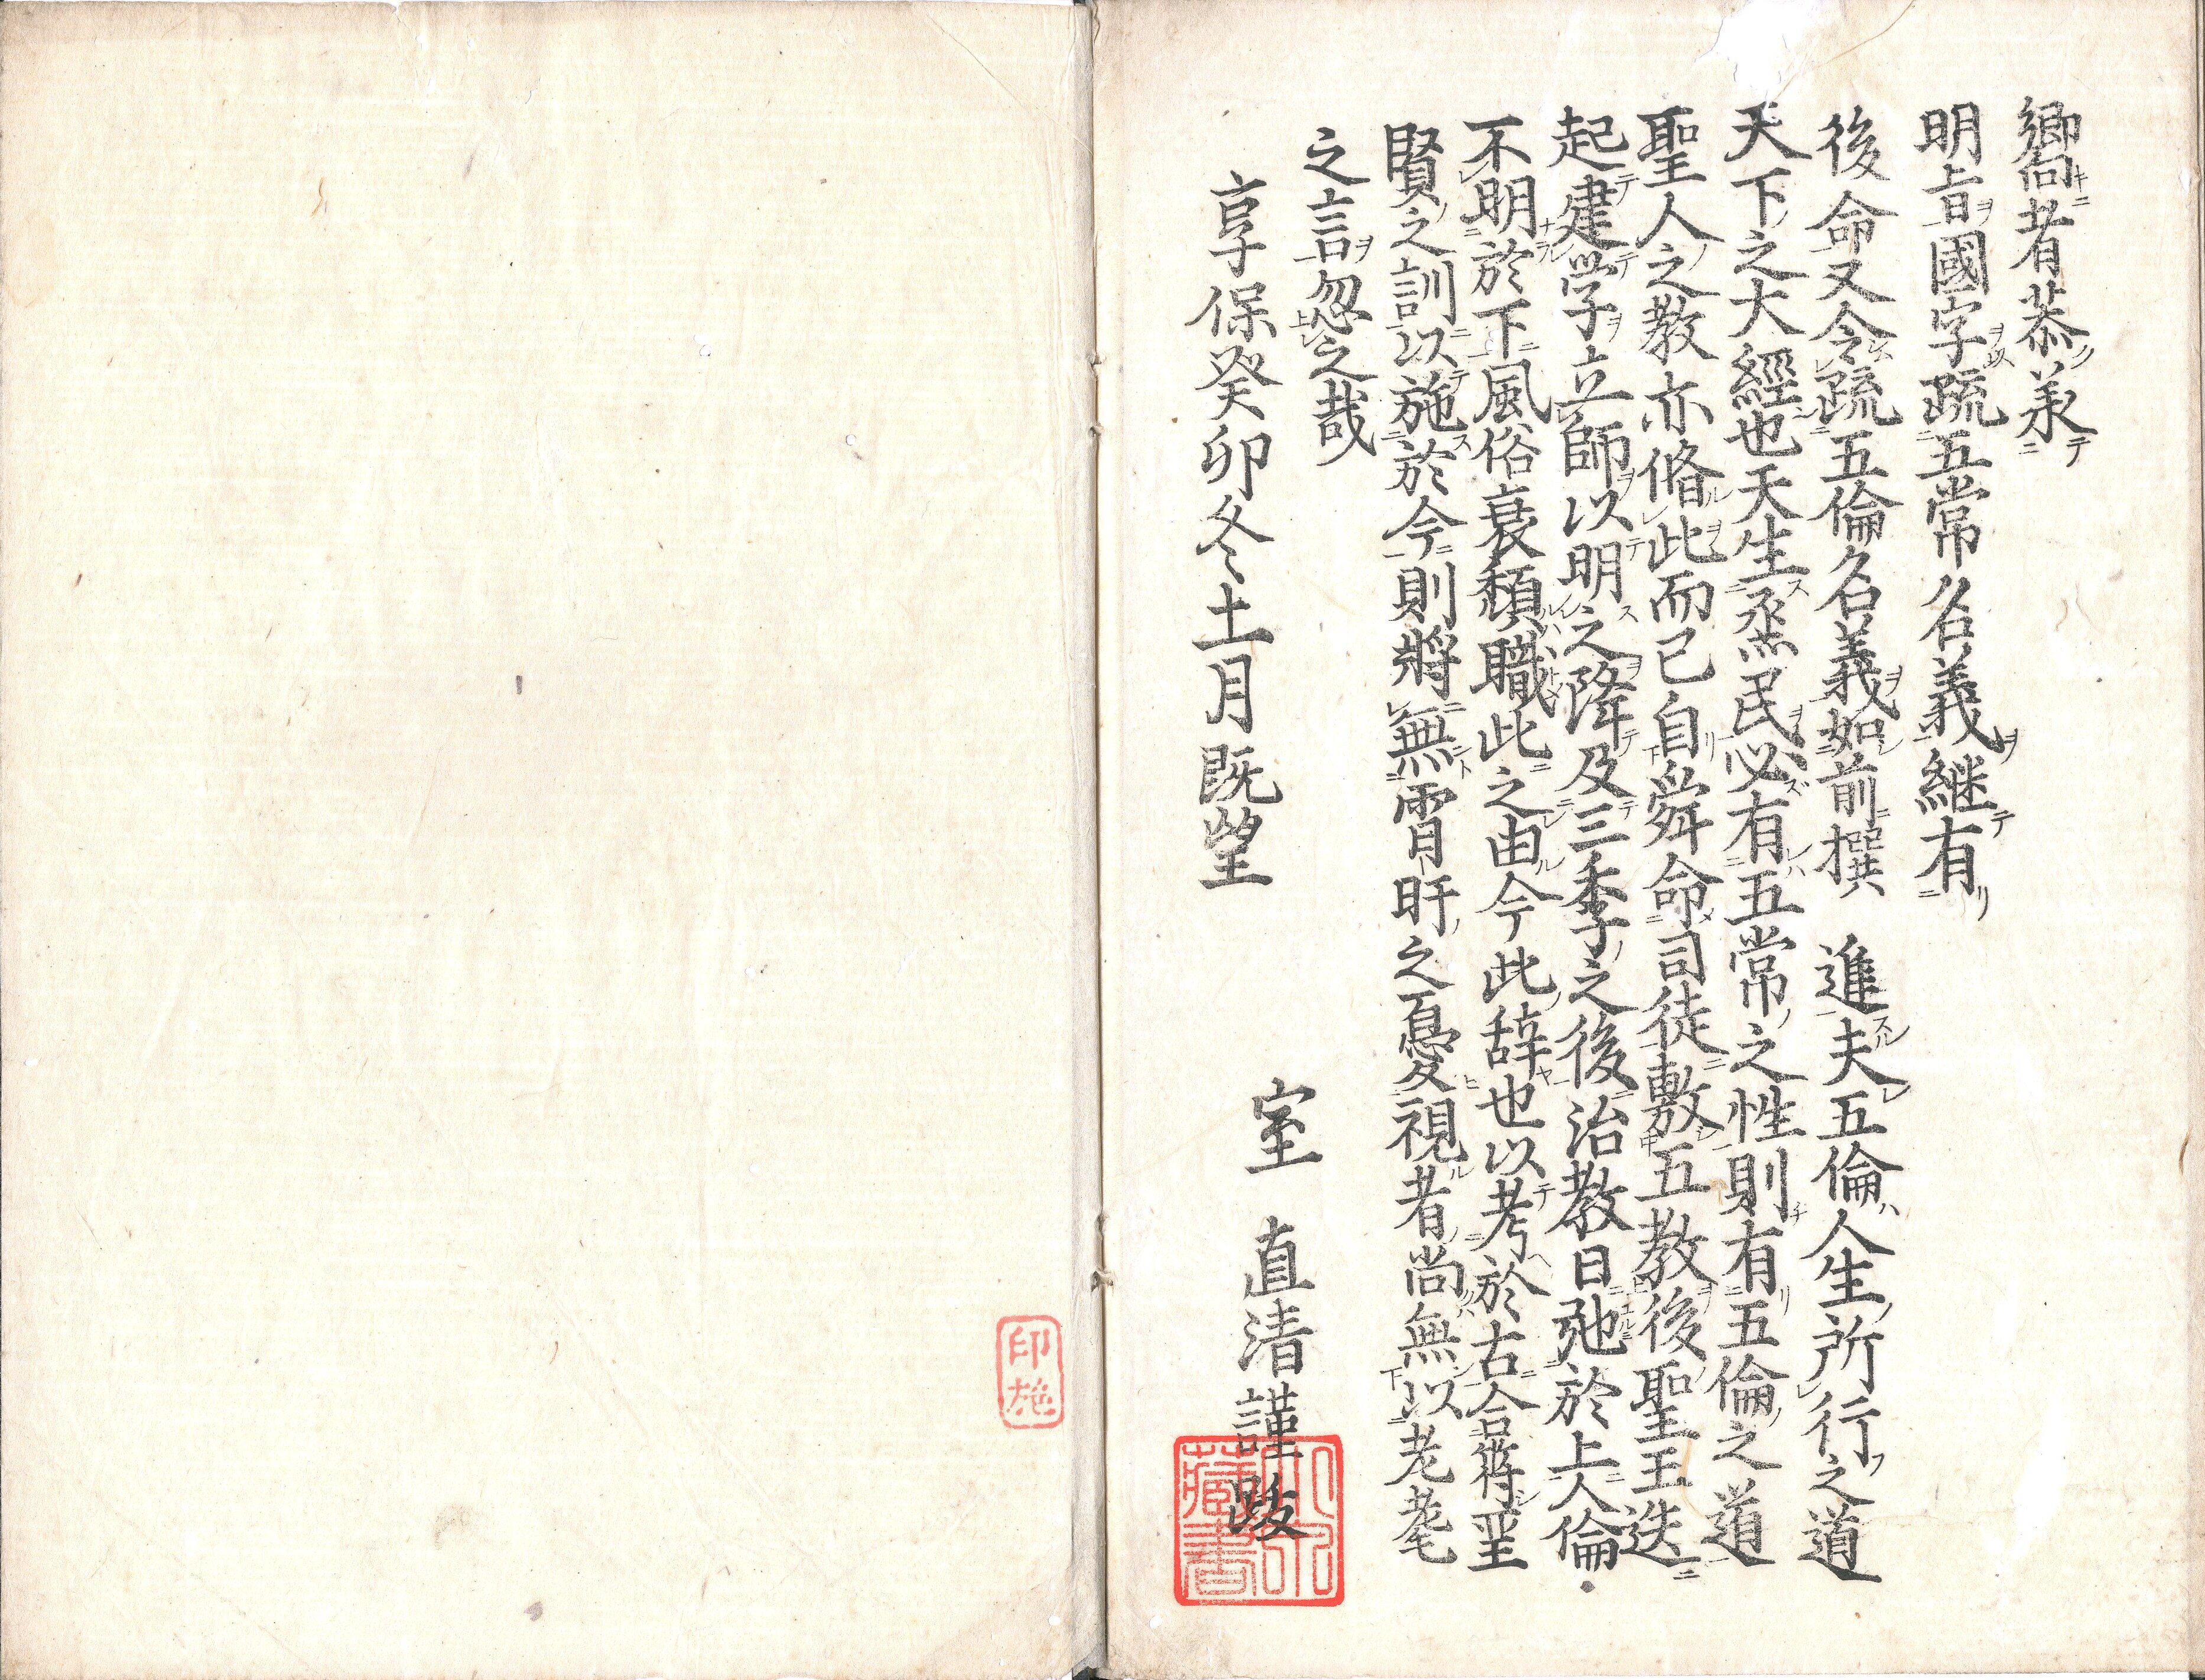 嚮者恭羕
明旨國字疏五常名義継有
後命又令疏五倫名義如前撰　進夫五倫人生所行之道
天下之大經也天生烝民必有五常之性則有五倫之道
聖人之教亦脩此而已自舜命司徒敷五教後聖王迭
起建学立師以明之降及三季之後治教日弛於上人倫
不明於下風俗衰頽職此之由今此辞也以考於古合符聖
賢之訓以施於今則將無宵旰之憂視者尚無以老耄
之言忽之哉
享保癸卯冬十一月既望
室　直清謹跋
藏書
印施